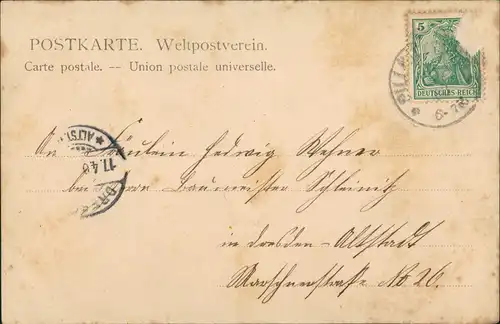 POSTKARTE. Weltpostverein.
Carte postale. -- Union postale universelle.
5
DEUTSCHES REICH
* ALTST.
11.4.0
DRES
6-7
An Fräulein Hedwig Wehner
bei Herrn Baumeister Schleinitz
in Dresden-Altstadt
Marschnerstraße No 26.